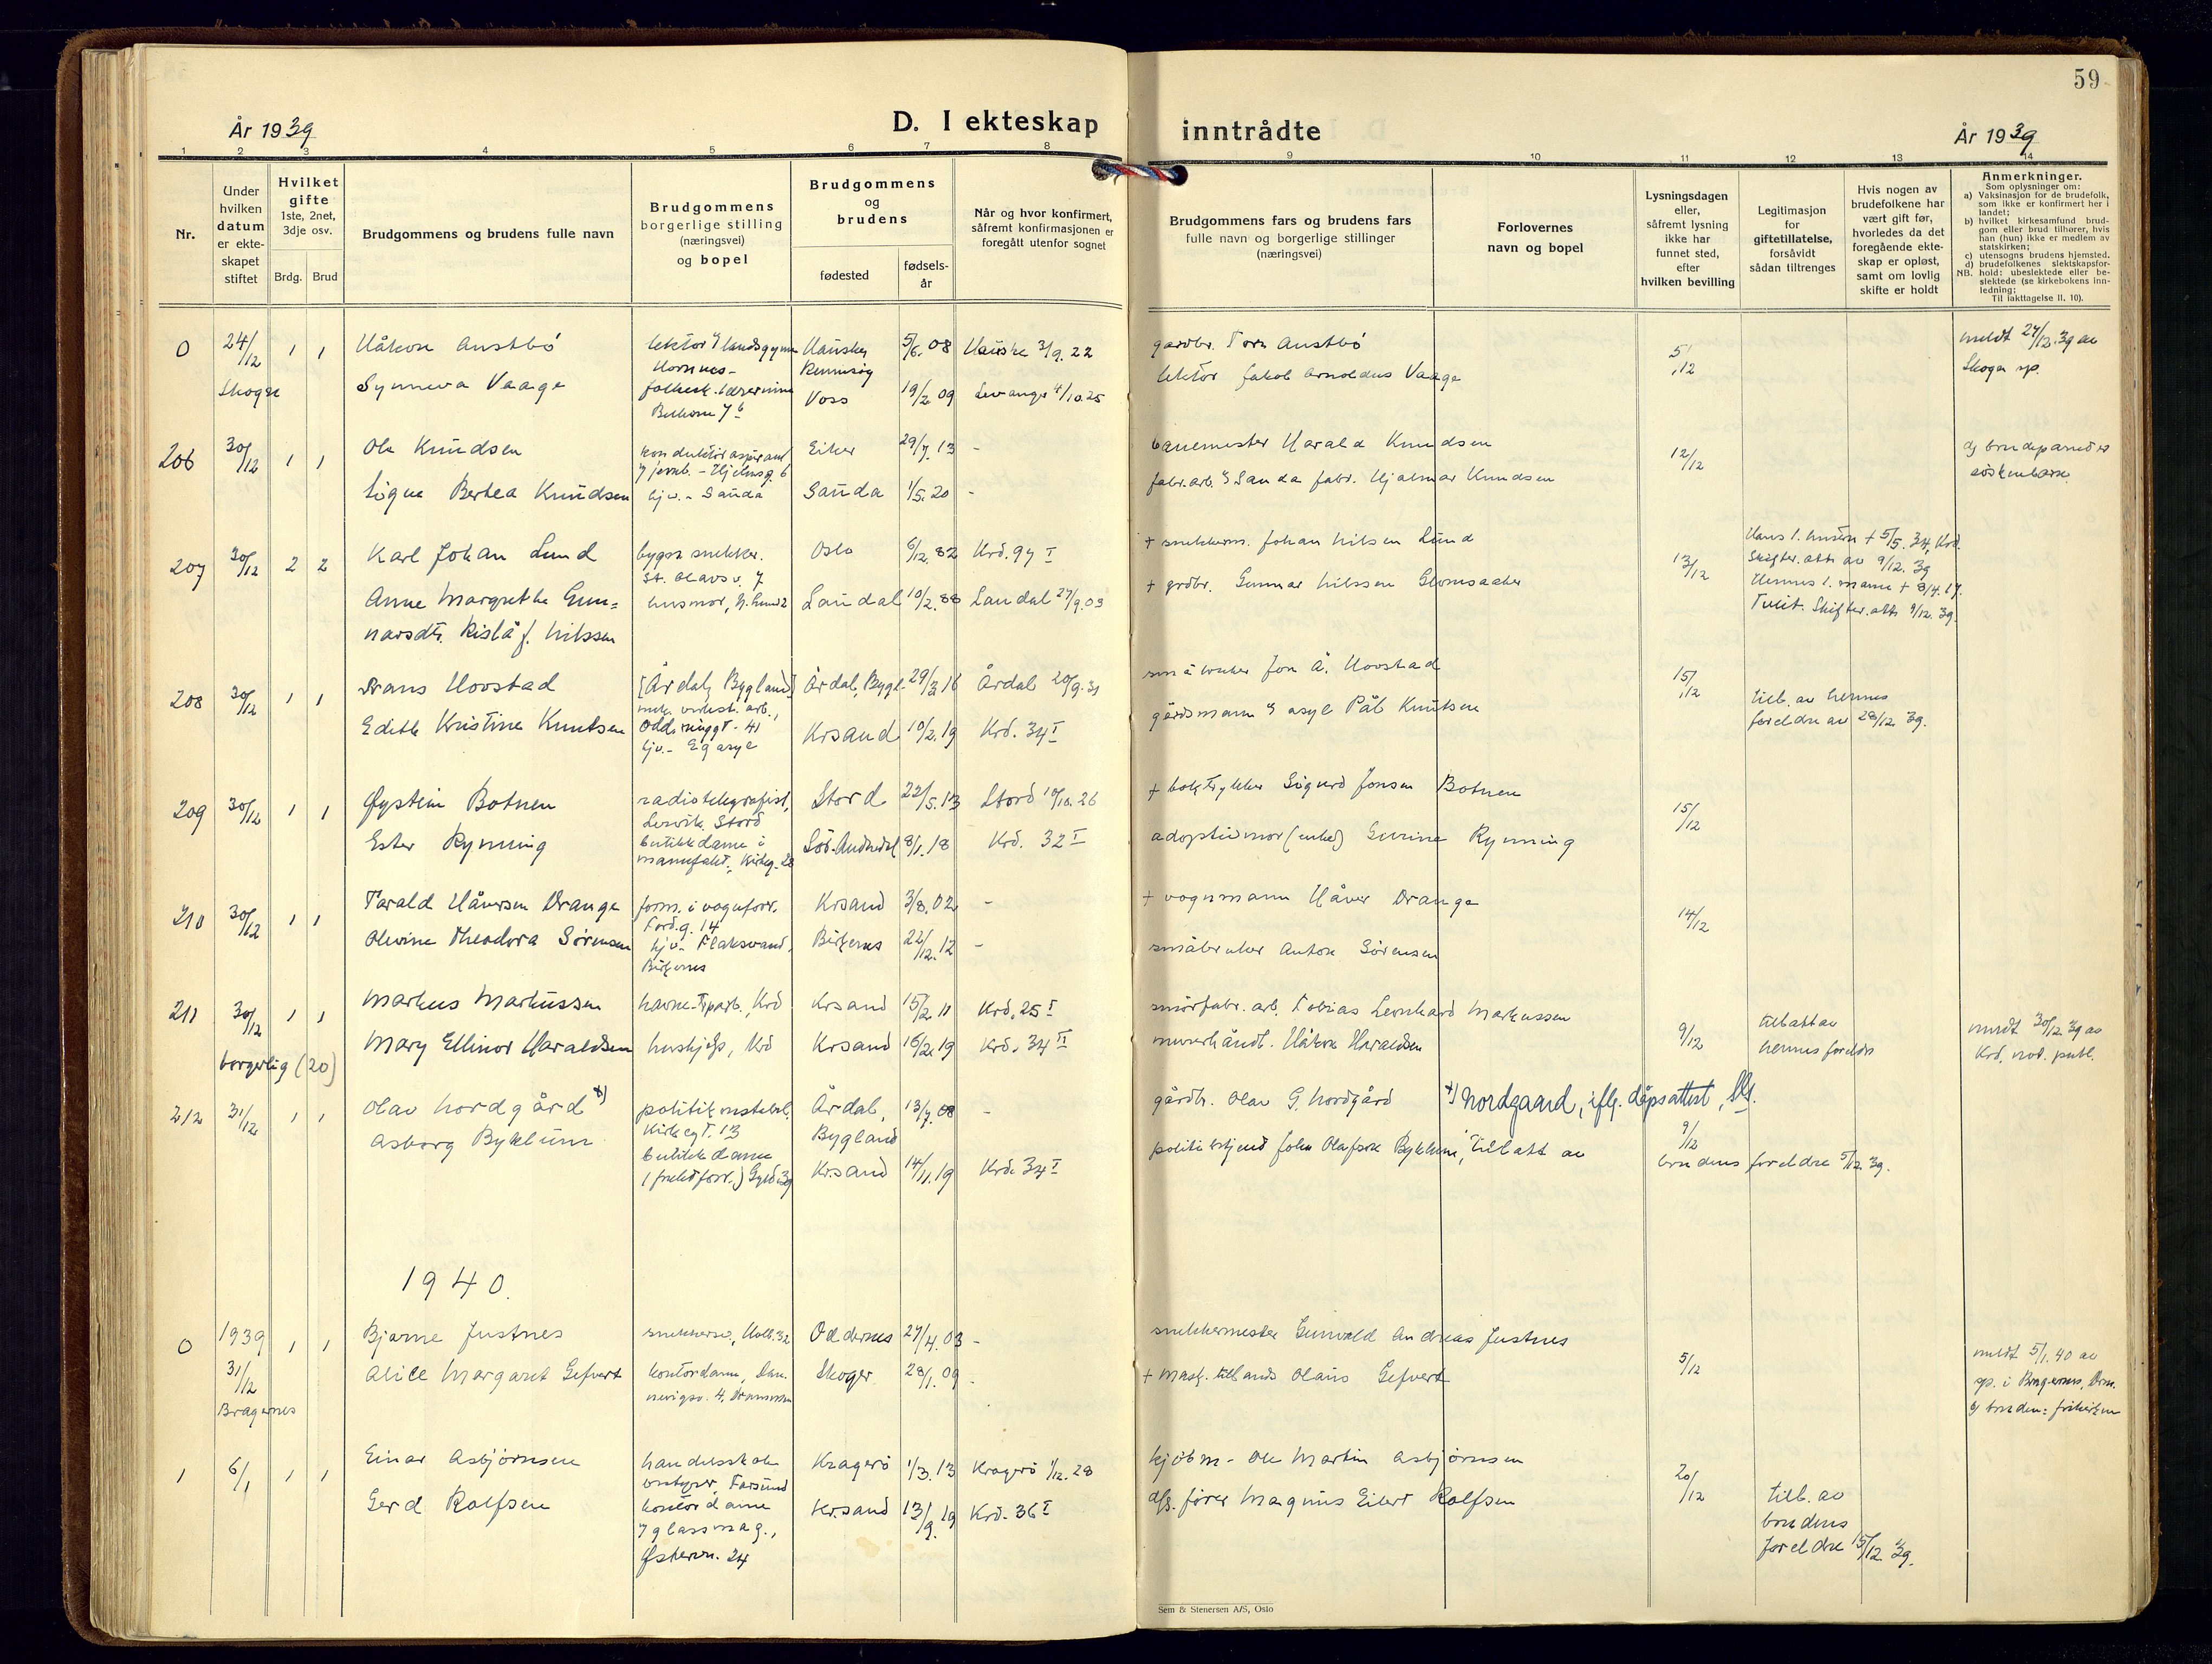 59
År 1939
D. I ekteskap
inntrådte
År 1939
1 2 3 4 5 6 7 8 9 10 11 12 13 14
Nr.
Under
hvilken
datum
er ekte-
skapet
stiftet
Hvilket
gifte
1ste, 2net,
3dje osv.
Brdg. Brud
Brudgommens og brudens fulle navn
Brudgommens
borgerlige stilling
(næringsvei)
og bopel
Brudgommens
og
brudens
fødested
fødsels-
år
Når og hvor konfirmert,
såfremt konfirmasjonen er
foregått utenfor sognet
Brudgommens fars og brudens fars
fulle navn og borgerlige stillinger
(næringsvei)
Forlovernes
navn og bopel
Lysningsdagen
eller,
såfremt lysning
ikke har
funnet sted,
efter
hvilken bevilling
Legitimasjon
for
giftetillatelse,
forsåvidt
sådan tiltrenges
Hvis nogen av
brudefolkene har
vært gift før,
hvorledes da det
foregående ekte-
skap er opløst,
samt om lovlig
skifte er holdt
Anmerkninger.
Som oplysninger om:
a) Vaksinasjon for de brudefolk,
som ikke er konfirmert her i
landet;
b) hvilket kirkesamfund brud-
gom eller brud tilhører, hvis
han (hun) ikke er medlem av
statskirken;
c) utensogns brudens hjemsted.
d) brudefolkenes slektskapsfor-
NB. hold: ubeslektede eller be-
slektede (se kirkebokens inn-
ledning;
Til iakttagelse II. 10).
0 24/12 1 1 Håkon Austbø
Hauske 5/6.08 Hauske 3/9.22
gardbr. Tore Austbø
5/12
meldt 27/12.39 av
Skoger sp.
Skoger
Synneva Vaage
Voss 19/2.09 Levanger 4/10.25
lektor Jakob Arnoldus Vaage
206 30/12 1 1 Ole Knudsen
Eiker 29/7.13 -
banemester Harald Knudsen
12/12
d) brudeparet er
søskenbarn
Signe Bertea Knudsen
hjv. - Sauda
Sauda 1/5.20 -
fabr.arb. v/ Sauda fabr. Hjalmar Knudsen
207 30/12 2 2 Karl Johan Lund
bygn. snekker.
St. Olavs v. 7
Oslo 6/12.82 Krd. 97 I
+ snekkerm. Johan Nilsen Lund
13/12
Hans 1. hustru + 5/5.34, Krd.
Skifter.att. av 9/12.39
Hennes 1. mann + 8/4.17.
Skifter.att. 9/12.39.
Anne Margrethe Gun=
narsdtr. Rislå f. Nilssen
husmor,
Laudal 10/2.88 Laudal 27/9.03
+ grdbr. Gunnar Nilssen
208 30/12 1 1 Frans Hovstad
[Årdal, Bygland]
mek. verkst. arb.,
Årdal, Bygl. 29/3.16 Årdal 20/9.31
småbruker Jon Å. Hovstad
15/12
till. av hennes
foreldre av 28/12 39.
Edith Kristine Knutsen
Oddernesgt. 41
hjv.- Eg asyl
Krsand 10/2.19 Krd. 34 I
gårdsmann v/ asyl Pål Knutsen
209 30/12 1 1 Øystein Botnen
radiotelegrafist,
Lervik, Stord
Stord 22/5.13 Stord 10/10.26
+ boktrykker Sigurd Jonsen Botnen
15/12
Ester Rynning
butikkdame i
manufakt., Kirkeg. 28
Sør-Audnedal 8/1.18 Krd. 32 I
adoptivmor (enke) Gurine Rynning
210 30/12 1 1 Tarald Håversen Drange
form. i vognforr.
Tord.g. 14
Krsand 3/8.02 -
+ vognmann Håver Drange
14/12
Olevine Theodora Sørensen
hjv.- Flaksvand,
Birkenes
Birkenes 22/12.12 -
småbruker Anton Sørensen
211 30/12 1 1 Markus Markussen
Krsand 15/2.11 Krd. 25 I
smørfabr. arb. Tobias Leonhard Markussen
9/12
till.att av
hennes foreldre
meldt 30/12.39 av
Krd. not. publ.
Mary Ellinor Haraldsen
hushjelp, Krd
Krsand 16/2.19 Krd. 34 II
murerhåndl. Håkon Haraldsen
borgerlig (20)
212 31/12 1 1 Olav Nordgård x)
politikonstabel,
Kirkegt. 13
Årdal,
Bygland
13/7.08 -
gårdbr. Olav G. Nordgård
x) Nordgaard, iflg. dåpsattest,
9/12
Asborg Byklum
butikkdame
Krsand 14/11.19 Krd. 34 I
politibetjent John Olafsen Byklum, till.att av
brudens foreldre 5/12 39.
1940.
0 1939 31/12 Bragernes 1 1 Bjarne Justnes
Oddernes 27/4.03 -
snekkermester Gunvald Andreas Justnes
5/12
meldt 5/1.40 av
sp. i Bragernes, Drm.
b) bruden: frikirken
Alice Margaret Gefvert
kontordame,
Drammen
Skoger 28/1.09 -
+ mask. Olaus Gefvert
1 6/1 1 1 Einar Asbjørnsen
handelsskole
bestyrer, Farsund
Kragerø 1/3.13 Kragerø 1/12.28
kjøbm. Ole Martin Asbjørnsen
20/12
till. av
brudens
foreldre 15/12 39.
Gerd Rolfsen
kontordame
v/ glassmag.,
Østervn. 24
Kr.sand 13/9.19 Krd. 36 I
dfs. fører Magnus Eilert Rolfsen
Sem & Stenersen A/S, Oslo